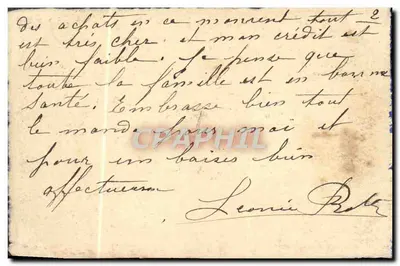 des achats en ce moment tout 2
est très cher et mon crédit est
bien faible. Je pense que
toute la famille est en bonne
santé. Embrasse bien tout
le monde pour moi et
CPAPHIL
pour un baises bien
affectueux
Léonie